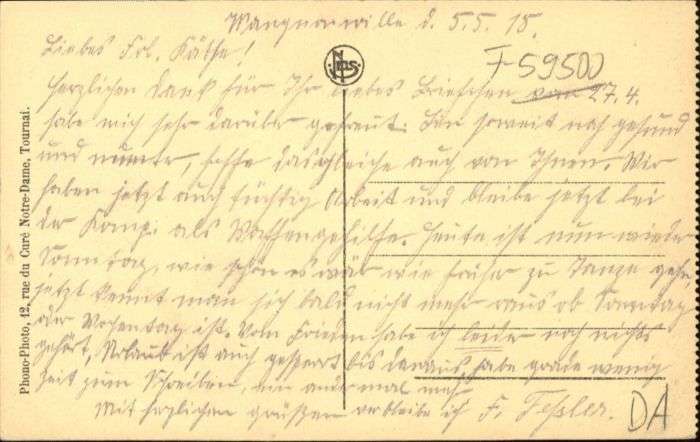 d. 5.5.15.
Liebes Frl. Käthe!
F-59500
Herzlichen Dank für Ihr liebes Briefchen vom 27.4.
habe mich sehr darüber gefreut. Bin soweit noch gesund
und munter, hoffe dasgleiche auch von Ihnen. Wir
haben jetzt auch tüchtig Arbeit und bleibe jetzt bei
der Komp. als Waffengehilfe. Heute ist nun wieder
Sonntag, wie schön es wär wie früher zu Tanze gehn
jetzt kennt man sich bald nicht mehr raus ob Sonntag
oder Wochentag ist. Vom Frieden habe ich leider noch nichts
gehört, Urlaub ist auch gesperrt bis daraus habe grade wenig
Zeit zum Schreiben, ein ander mal mehr
Mit herzlichen Grüßen verbleibe ich F. Teßler.
DA
Phono-Photo, 12, rue du Curé Notre-Dame, Tournai.